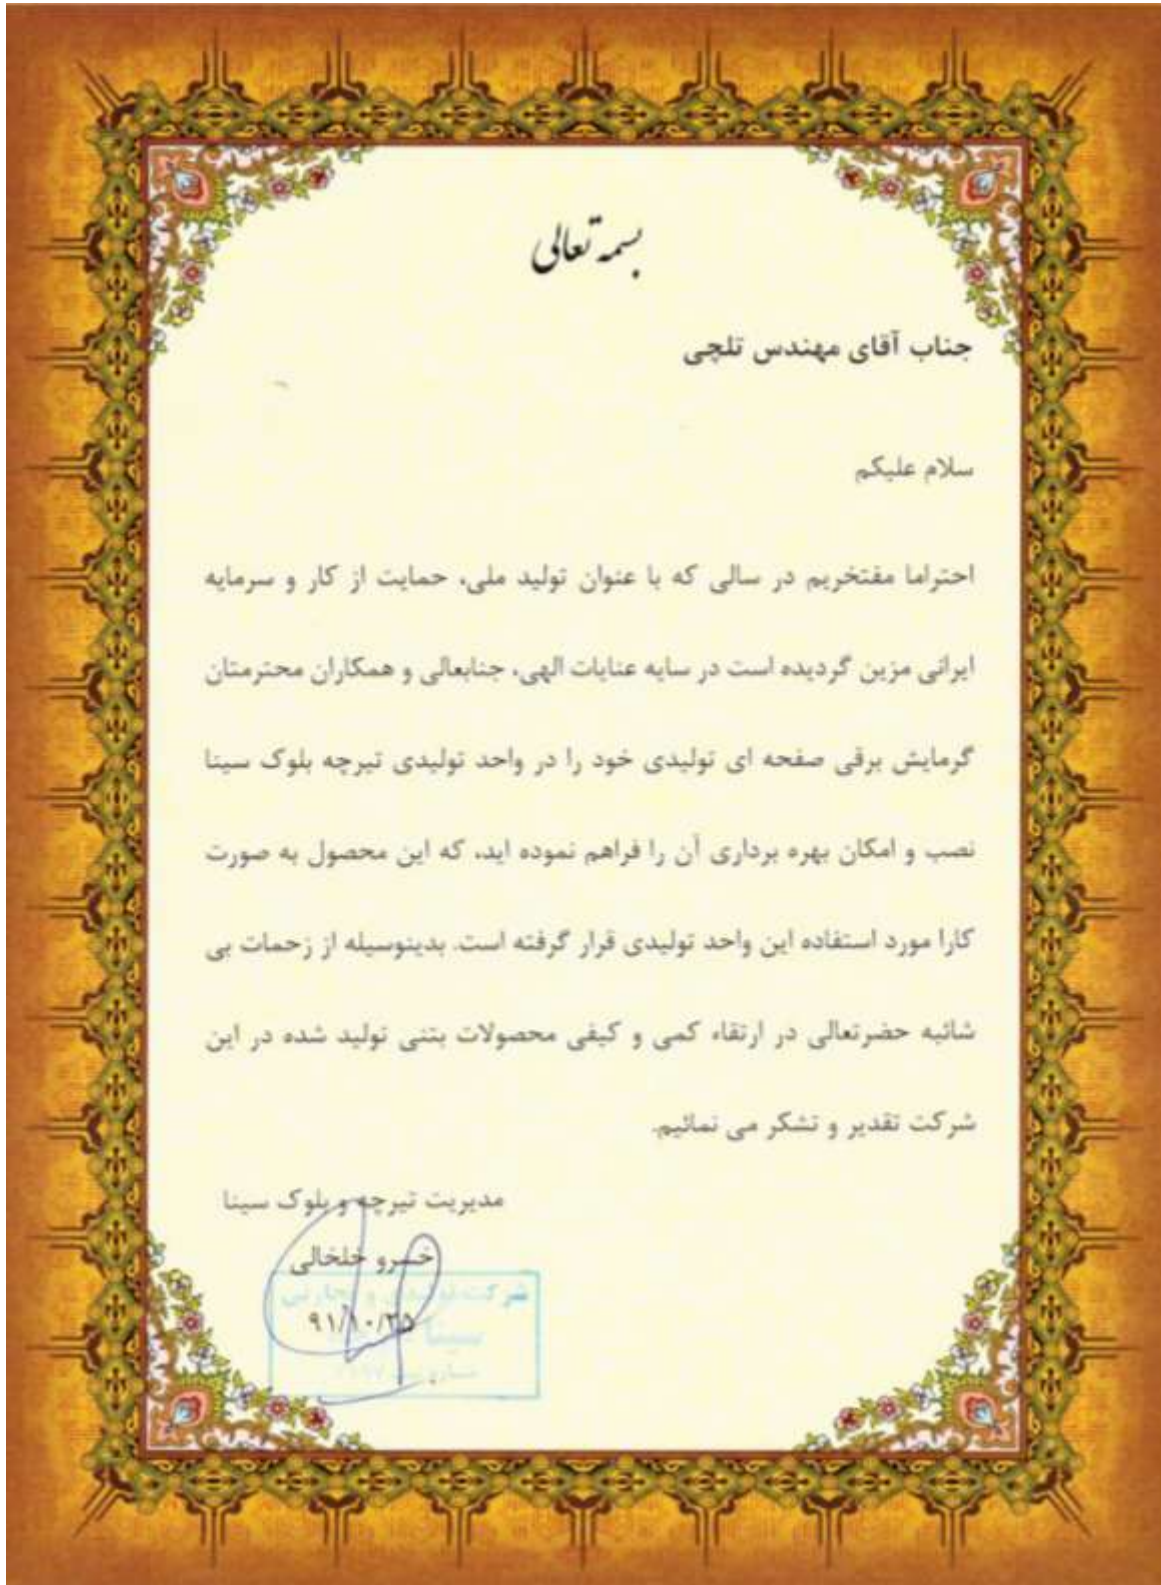 بسمه تعالی
جناب آقای مهندس تلچی
سلام علیکم
احتراما مفتخریم در سالی که با عنوان تولید ملی، حمایت از کار و سرمایه
ایرانی مزین گردیده است در سایه عنایات الهی، جنابعالی و همکاران محترمتان
گرمایش برقی صفحه ای تولیدی خود را در واحد تولیدی تیرچه بلوک سینا
نصب و امکان بهره برداری آن را فراهم نموده اید، که این محصول به صورت
کارا مورد استفاده این واحد تولیدی قرار گرفته است. بدینوسیله از زحمات بی
شائبه حضرتعالی در ارتقاء کمی و کیفی محصولات بتنی تولید شده در این
شرکت تقدیر و تشکر می نمائیم.
مدیریت تیرچه و بلوک سینا
خسرو خلخالی
شرکت تولیدی و تجارتی
۹۱/۱۰/۲۵
سینا